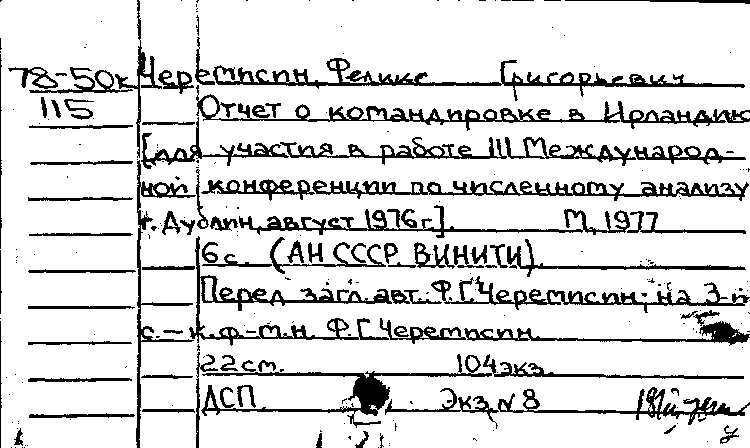 78-50к Черемисин, Феликс Григорьевич
115 Отчет о командировке в Ирландию
[для участия в работе III Международ-
ной конференции по численному анализу
г. Дублин, август 1976 г.]. М, 1977
6 с. (АН СССР. ВИНИТИ).
Перед загл. авт.: Ф.Г. Черемисин; на 3-й
с. – к.ф.-м.н. Ф.Г. Черемисин.
22 см. 104 экз.
ДСП. Экз. N 8